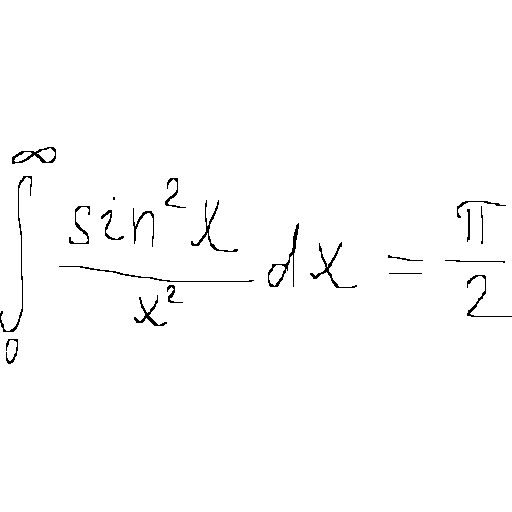 \int_{0}^{\infty} \frac{\sin^2 x}{x^2} dx = \frac{\pi}{2}